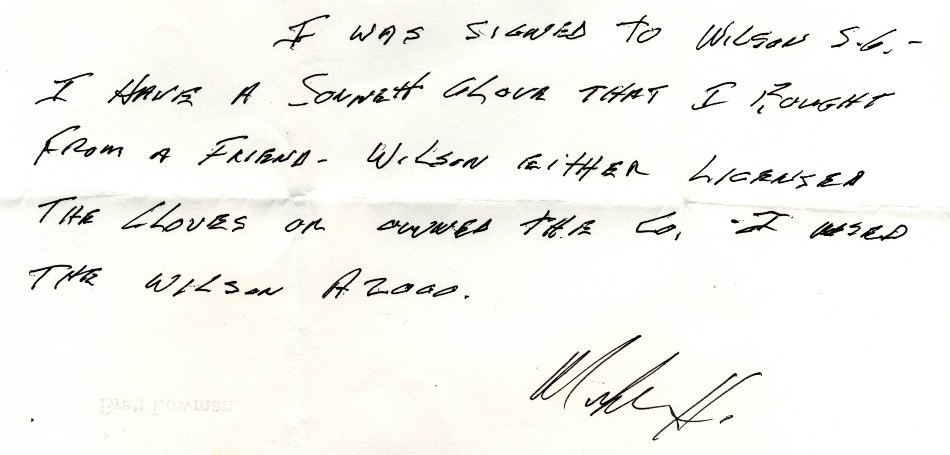 I WAS SIGNED TO WILSON S.G.-
I HAVE A SONNETT GLOVE THAT I BOUGHT
FROM A FRIEND- WILSON EITHER LICENSED
THE GLOVES OR OWNED THE CO. -I USED
THE WILSON A2000.
Brett Lowman